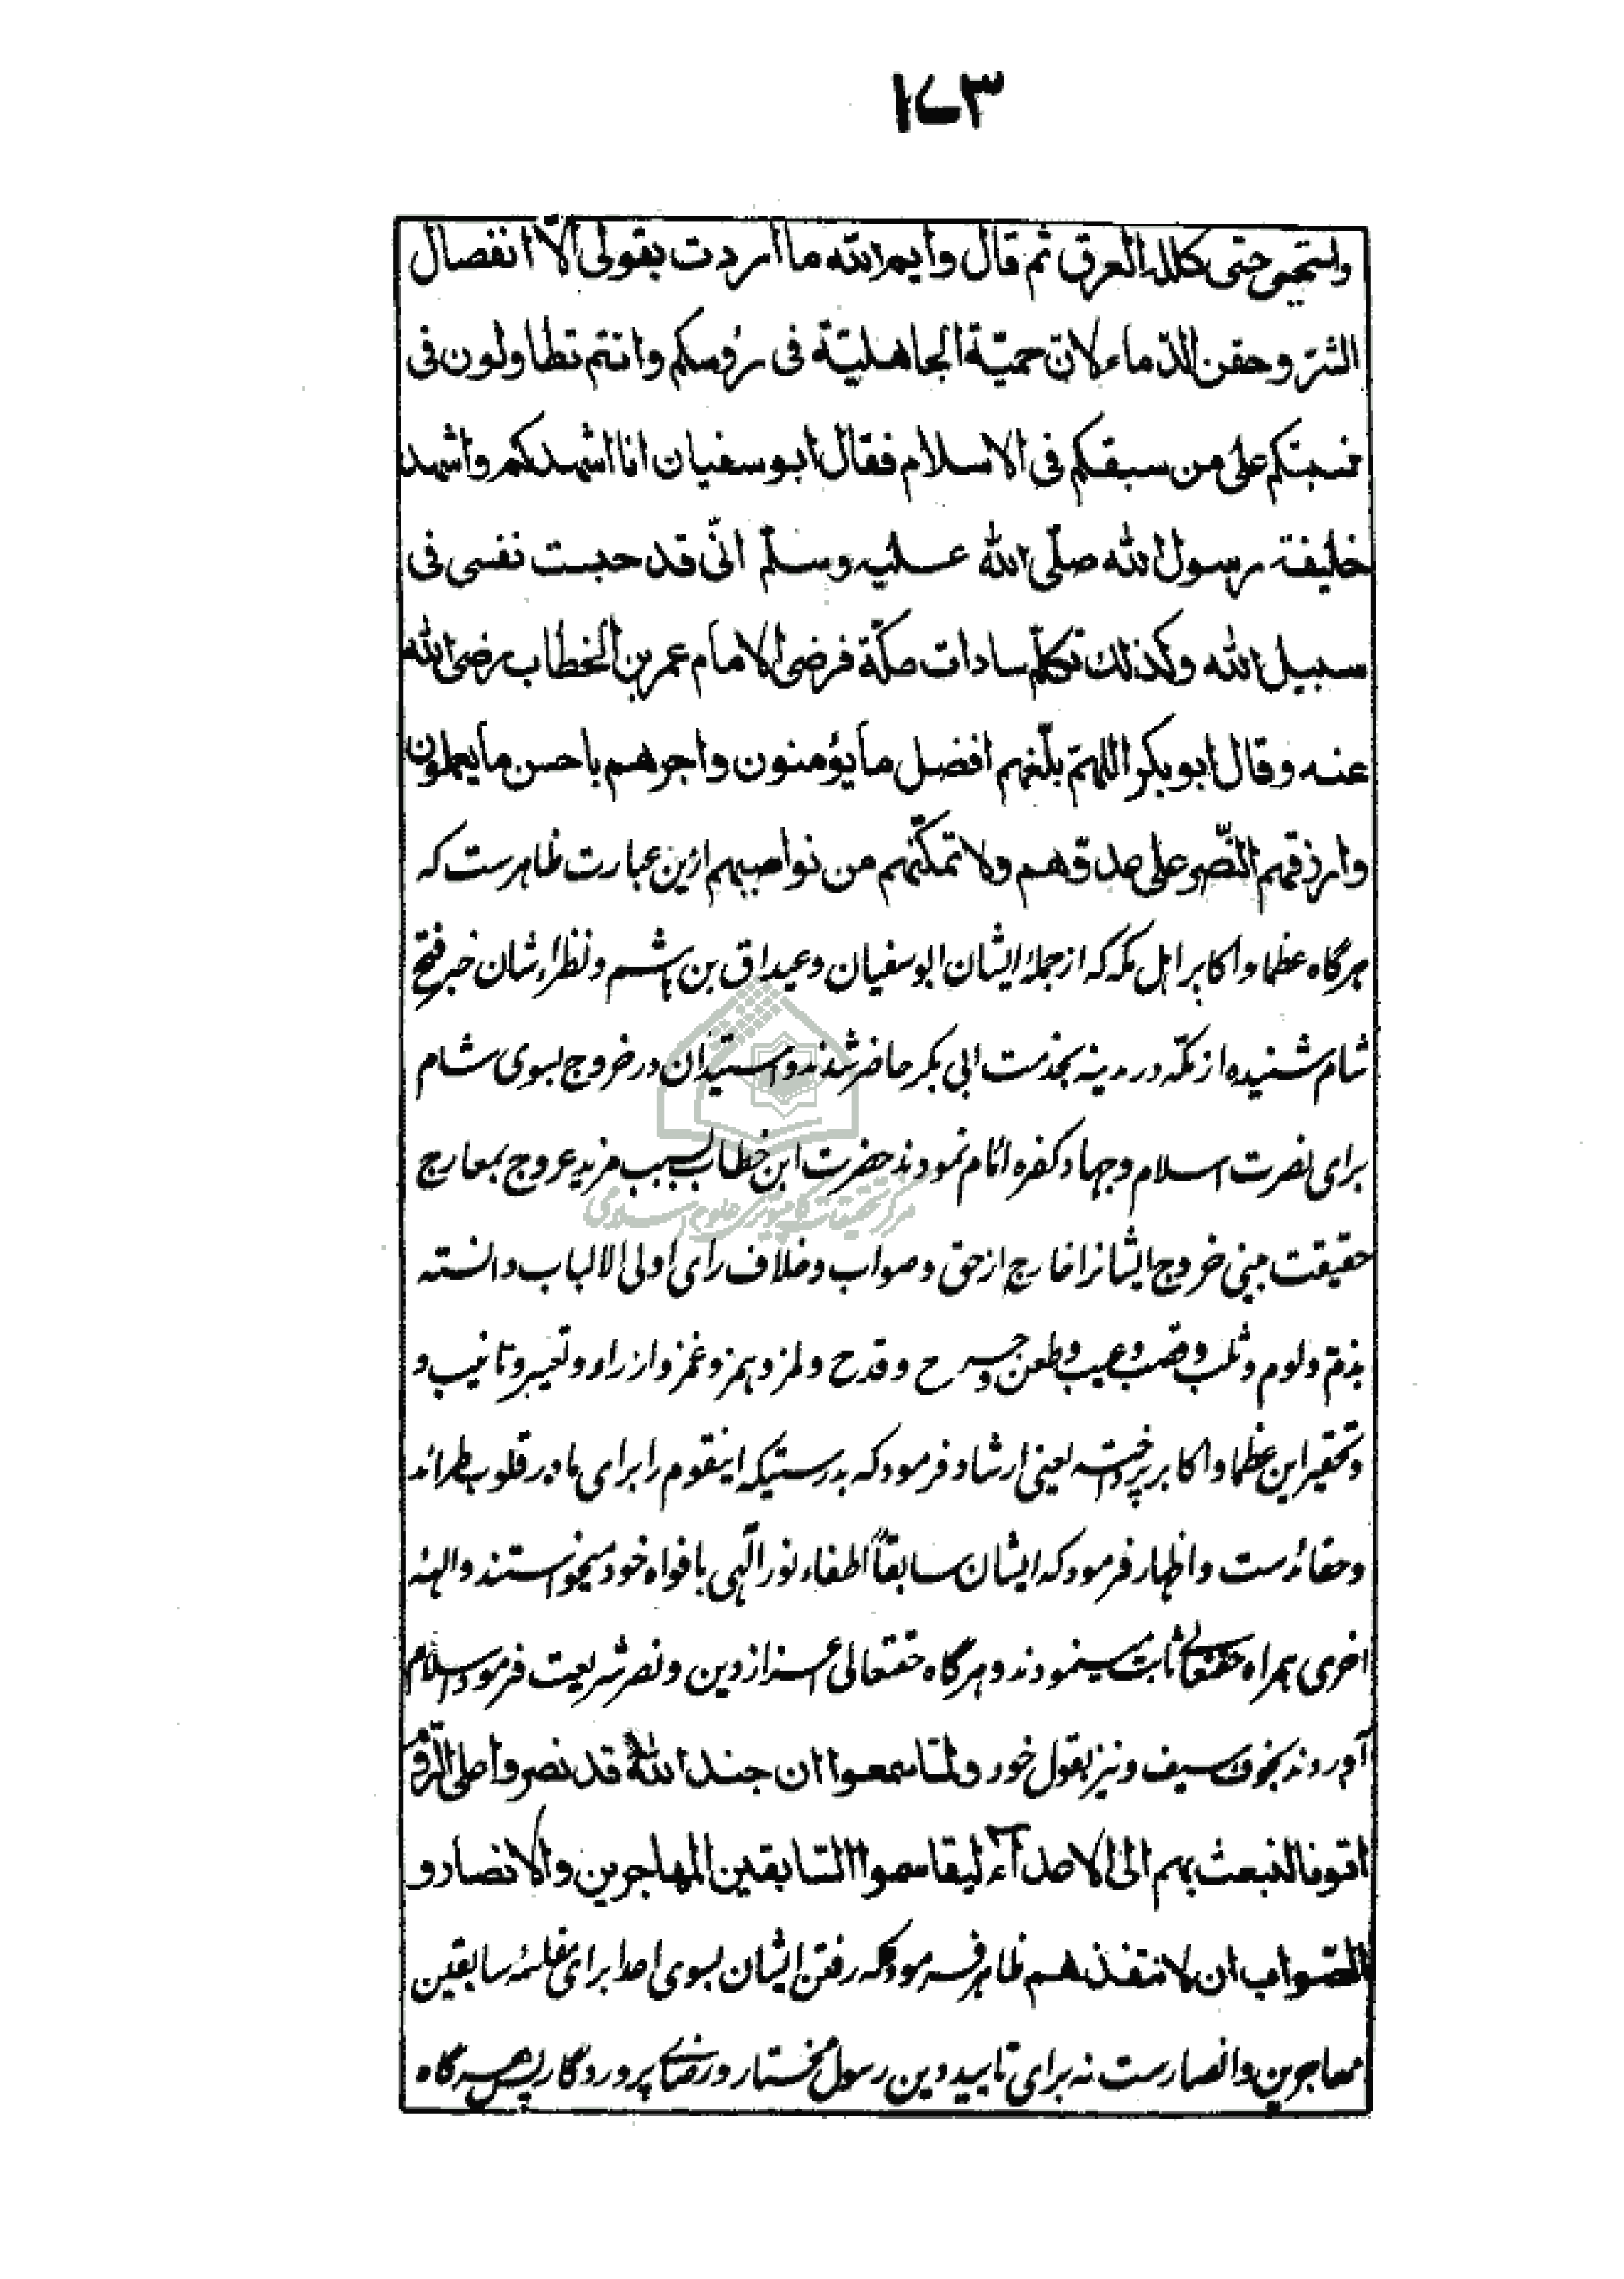 ۱۷۳
واستحیی حتی کلله العرق ثم قال وایم الله ما اردت بقولی الّا انفصال
الشرّ وحقن الدّماء لانّ حمیّة الجاهلیّة فی رؤسکم وانتم تطاولون فی
نسبتکم علی من سبقکم فی الاسلام فقال ابوسفیان انا اشهدکم واشهد
خلیفة رسول الله صلّی الله علیه وسلّم انّی قد حبست نفسی فی
سبیل الله وکذلک تکلّم سادات مکّة فرضی الامام عمر بن الخطاب رضی الله
عنه وقال ابو بکر اللهمّ بلّغهم افضل ما یؤمنون واجرهم باحسن ما یعملون
وارزقهم النّصر علی عدوّهم ولا تمکّنهم من نواصیهم ازین عبارت ظاهرست که
هرگاه عظما و اکابر اهل مکه که از جملهٔ ایشان ابوسفیان و عیداق بن هاشم و نظراء شان خبر فتح
شام شنیده از مکّه در مدینه بخدمت ابی بکر حاضر شدند و استیذان در خروج بسوی شام
برای نصرت اسلام و جهاد کفرهٔ اثام نمودند حضرت ابن خطاب بسبب مزید عروج بمعارج
حقیقت بینی خروج ایشانرا خارج از حق و صواب و خلاف رای اولی الالباب دانسته
بذمّ و لوم و ثلب و قصب و عیب و طعن و جرح و قدح و لمز و همز و غمز و ازراء و تعییر و تانیب و
و تحقیر این عظما و اکابر پرداخته یعنی ارشاد فرمود که بدرستیکه اینقوم را برای ما در قلوب
و حقائدست و اظهار فرمود که ایشان سابقاً اطفاء نور الٓهی بافواه خود میخواستند و الههٔ
اخری همراه حقتعالی ثابت مینمودند و هرگاه حقتعالی اعزاز دین و نصر شریعت فرمود اسلام
آوردند بخوف سیف و نیز بقول خود ولمّا سمعوا ان جند الله قد نصروا علی الرّوم
اتونا لنبعث بهم الی الاعدآء لیقاسموا السّابقین المهاجرین والانصار و
الصّواب ان لا تنفذهم ظاهر فرمود که رفتن ایشان بسوی اعدا برای سابقین
مهاجرین و انصارست نه برای تایید دین رسول مختار و رضای پروردگار پس هرگاه
مرکز تحقیقات کامپیوتری علوم اسلامی